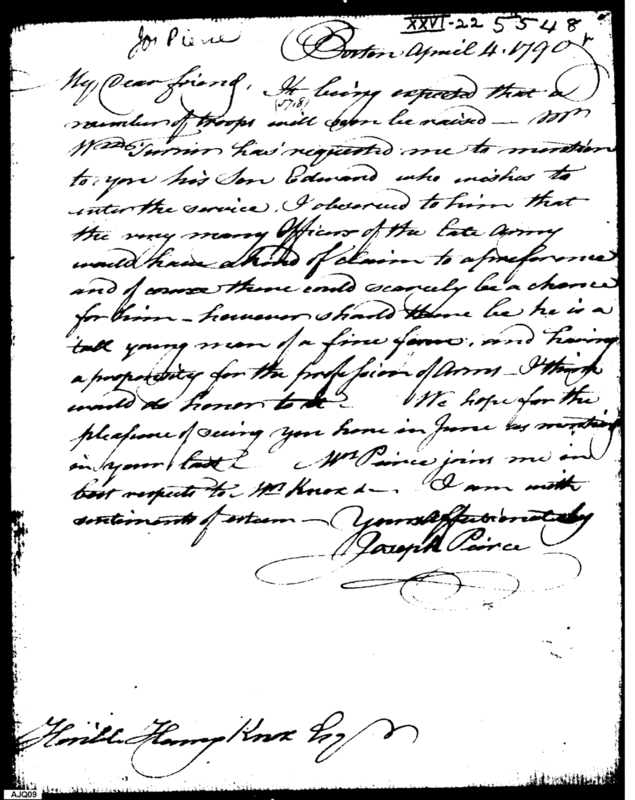 XXVI-22 5548
Jos Pierce
Boston April 4. 1790
My Dear friend. It being expected that a
(5718)
number of troops will soon be raised — Mr
Wm Turner has requested me to mention
to you his Son Edward who wishes to
enter the service. I observed to him that
the very many Officers of the late Army
would have a kind of claim to a preference
and of course there could scarcely be a chance
for him — however should there be he is a
tall young man of a fine form, and having
a propensity for the profession of Arms — I think
would do honor to it — We hope for the
pleasure of seeing you here in June as
in your last — Mrs Peirce joins me in
best respects to Mrs Knox & — I am with
sentiments of esteem — Yours affectionately
Joseph Peirce
Honble Henry Knox Esqr
AJQ09